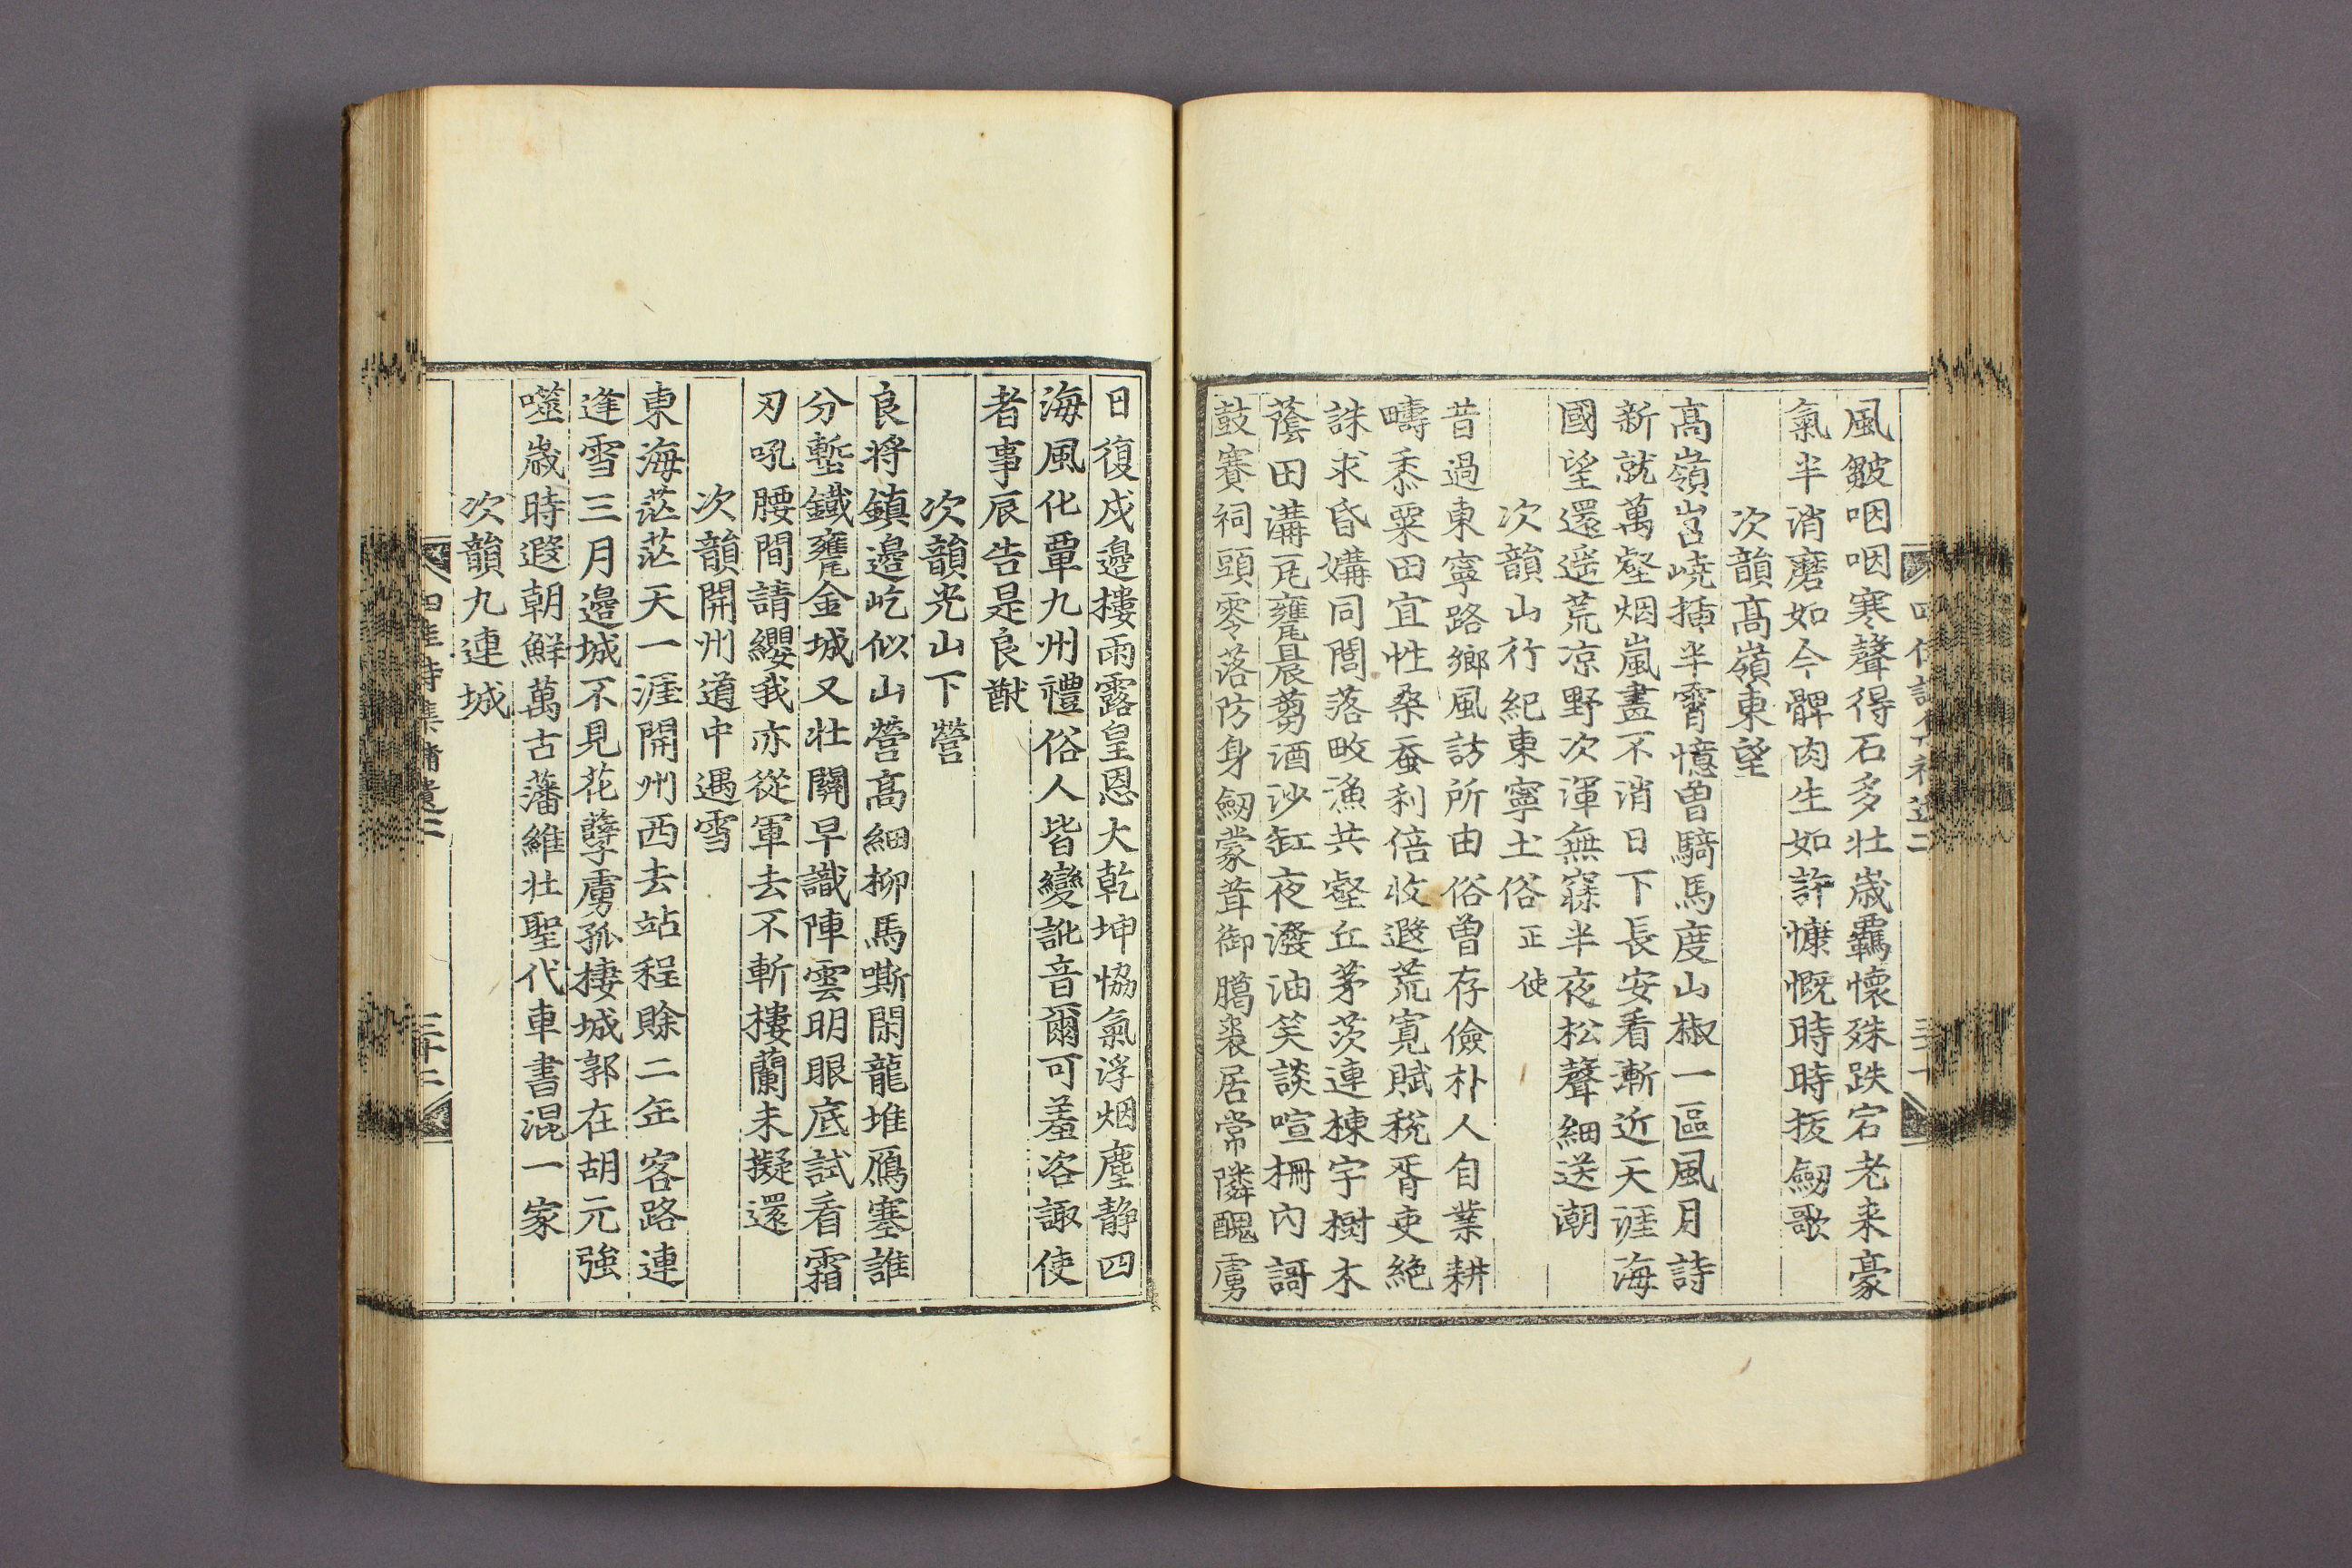 風皴咽咽寒聲得石多壮歲覊懷殊跌宕老来豪
氣半消磨如今髀肉生如許慷慨時時拔劒歌
次韻高嶺東望
高嶺岧嶢揷半霄憶曽騎馬度山椒一區風月詩
新就萬壑烟嵐畵不消日下長安看漸近天涯海
國望還遥荒凉野次渾無寐半夜松聲細送潮
次韻山行紀東寧土俗正使
昔過東寧路鄉風訪所由俗曽存儉朴人自業耕
疇黍粟田宜性桑蚕利倍收遐荒寛賦稅胥吏絶
誅求昏媾同閭落畋漁共壑丘茅茨連棟宇樹木
蔭田溝瓦甕晨蒭酒沙缸夜潑油笑談喧柵內謌
鼓賽祠頭零落防身劒蒙茸御臈裘居常隣醜虜
日復戍邊樓雨露皇恩大乾坤協氣浮烟塵静四
海風化覃九州禮俗人皆變訛音爾可羞咨諏使
者事辰告是良猷
次韻光山下營
良将鎮邊屹似山營高細柳馬嘶閑龍堆鴈塞誰
分塹鐵甕金城又壮關早識陣雲明眼底試看霜
刃吼腰間請纓我亦從軍去不斬樓蘭未擬還
次韻開州道中遇雪
東海茫茫天一涯開州西去站程賖二年客路連
逢雪三月邊城不見花孽虜孤棲城郭在胡元強
噬歲時遐朝鮮萬古藩維壮聖代車書混一家
次韻九連城
四佳詩集補遺二
三十二